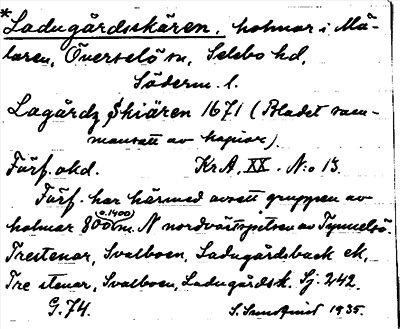 *Ladugårdsskären, holmar i Mä-
laren, Överselö sn, Selebo hd,
Söderm. l.
Lagårdz Skiären 1671 (Bladet sam-
mansatt av kopior)
Förf. okd. KrA, XX. N:o 13.
Förf. har härmed avsett gruppen av
holmar 800 (o. 1400) m. N nordvästspetsen av Tynnelsö.
Trestenar, Svalboen, Ladugårdsback ek,
Tre stenar, Svalboen, Ladugårdssk. Sj. 242.
G. 74. S. Sandquist 1935.